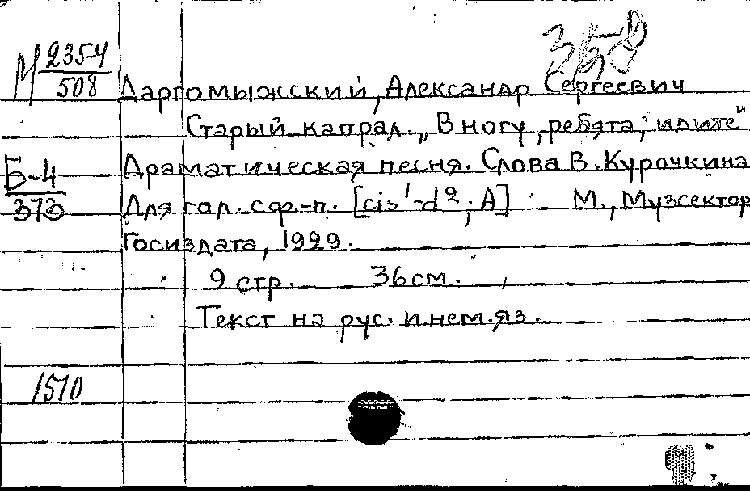 М 2354
508
Даргомыжский, Александр Сергеевич
Старый капрал. „В ногу, ребята, идите"
Б-4
373
Драматическая песня. Слова В. Курочкина
Для гол. с ф.-п. [cis¹-d²; А] М., Музсектор
Госиздата, 1929.
9 стр. 36 см.
Текст на рус. и нем. яз.
1510